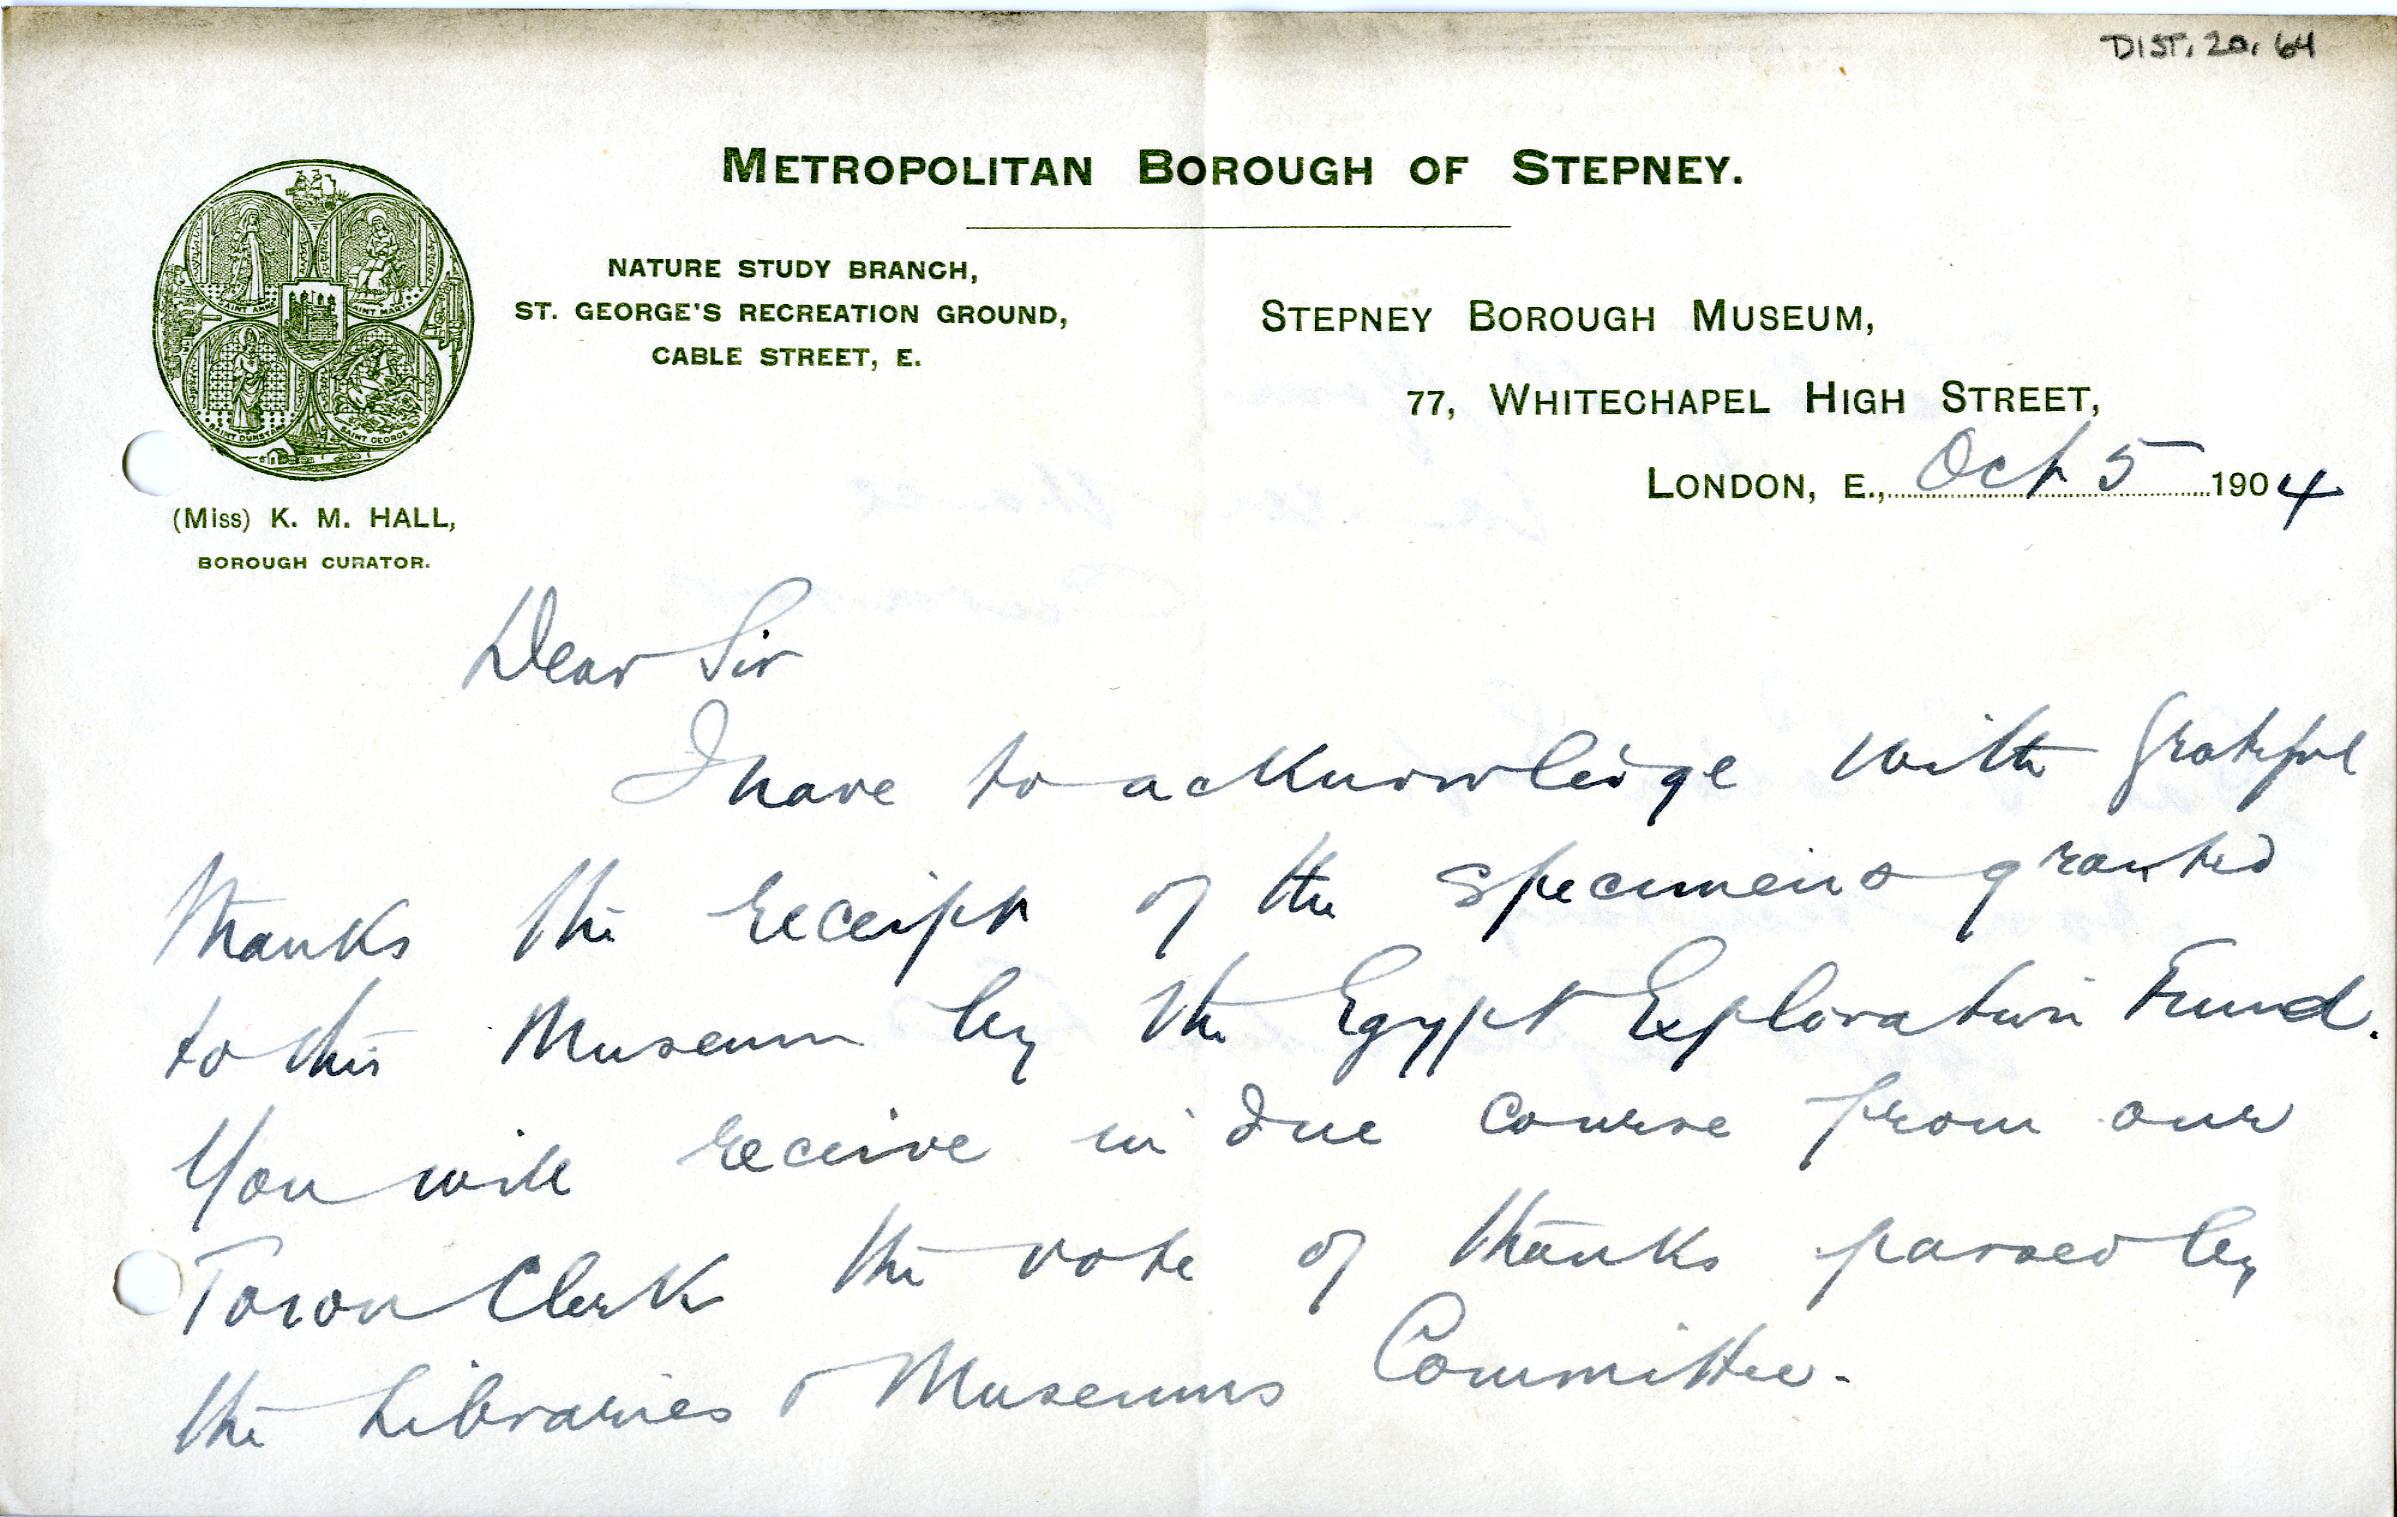 DIST. 20. 64
METROPOLITAN BOROUGH OF STEPNEY.
NATURE STUDY BRANCH,
ST. GEORGE'S RECREATION GROUND,
CABLE STREET, E.
STEPNEY BOROUGH MUSEUM,
77, WHITECHAPEL HIGH STREET,
LONDON, E., Oct 5 1904
SAINT ANNE
SAINT MARY
SAINT DUNSTAN
SAINT GEORGE
(Miss) K. M. HALL,
BOROUGH CURATOR.
Dear Sir
I have to acknowledge with grateful
thanks the receipt of the specimens granted
to this Museum by the Egypt Exploration Fund.
You will receive in due course from our
Town Clerk the vote of thanks passed by
the Libraries & Museums Committee.